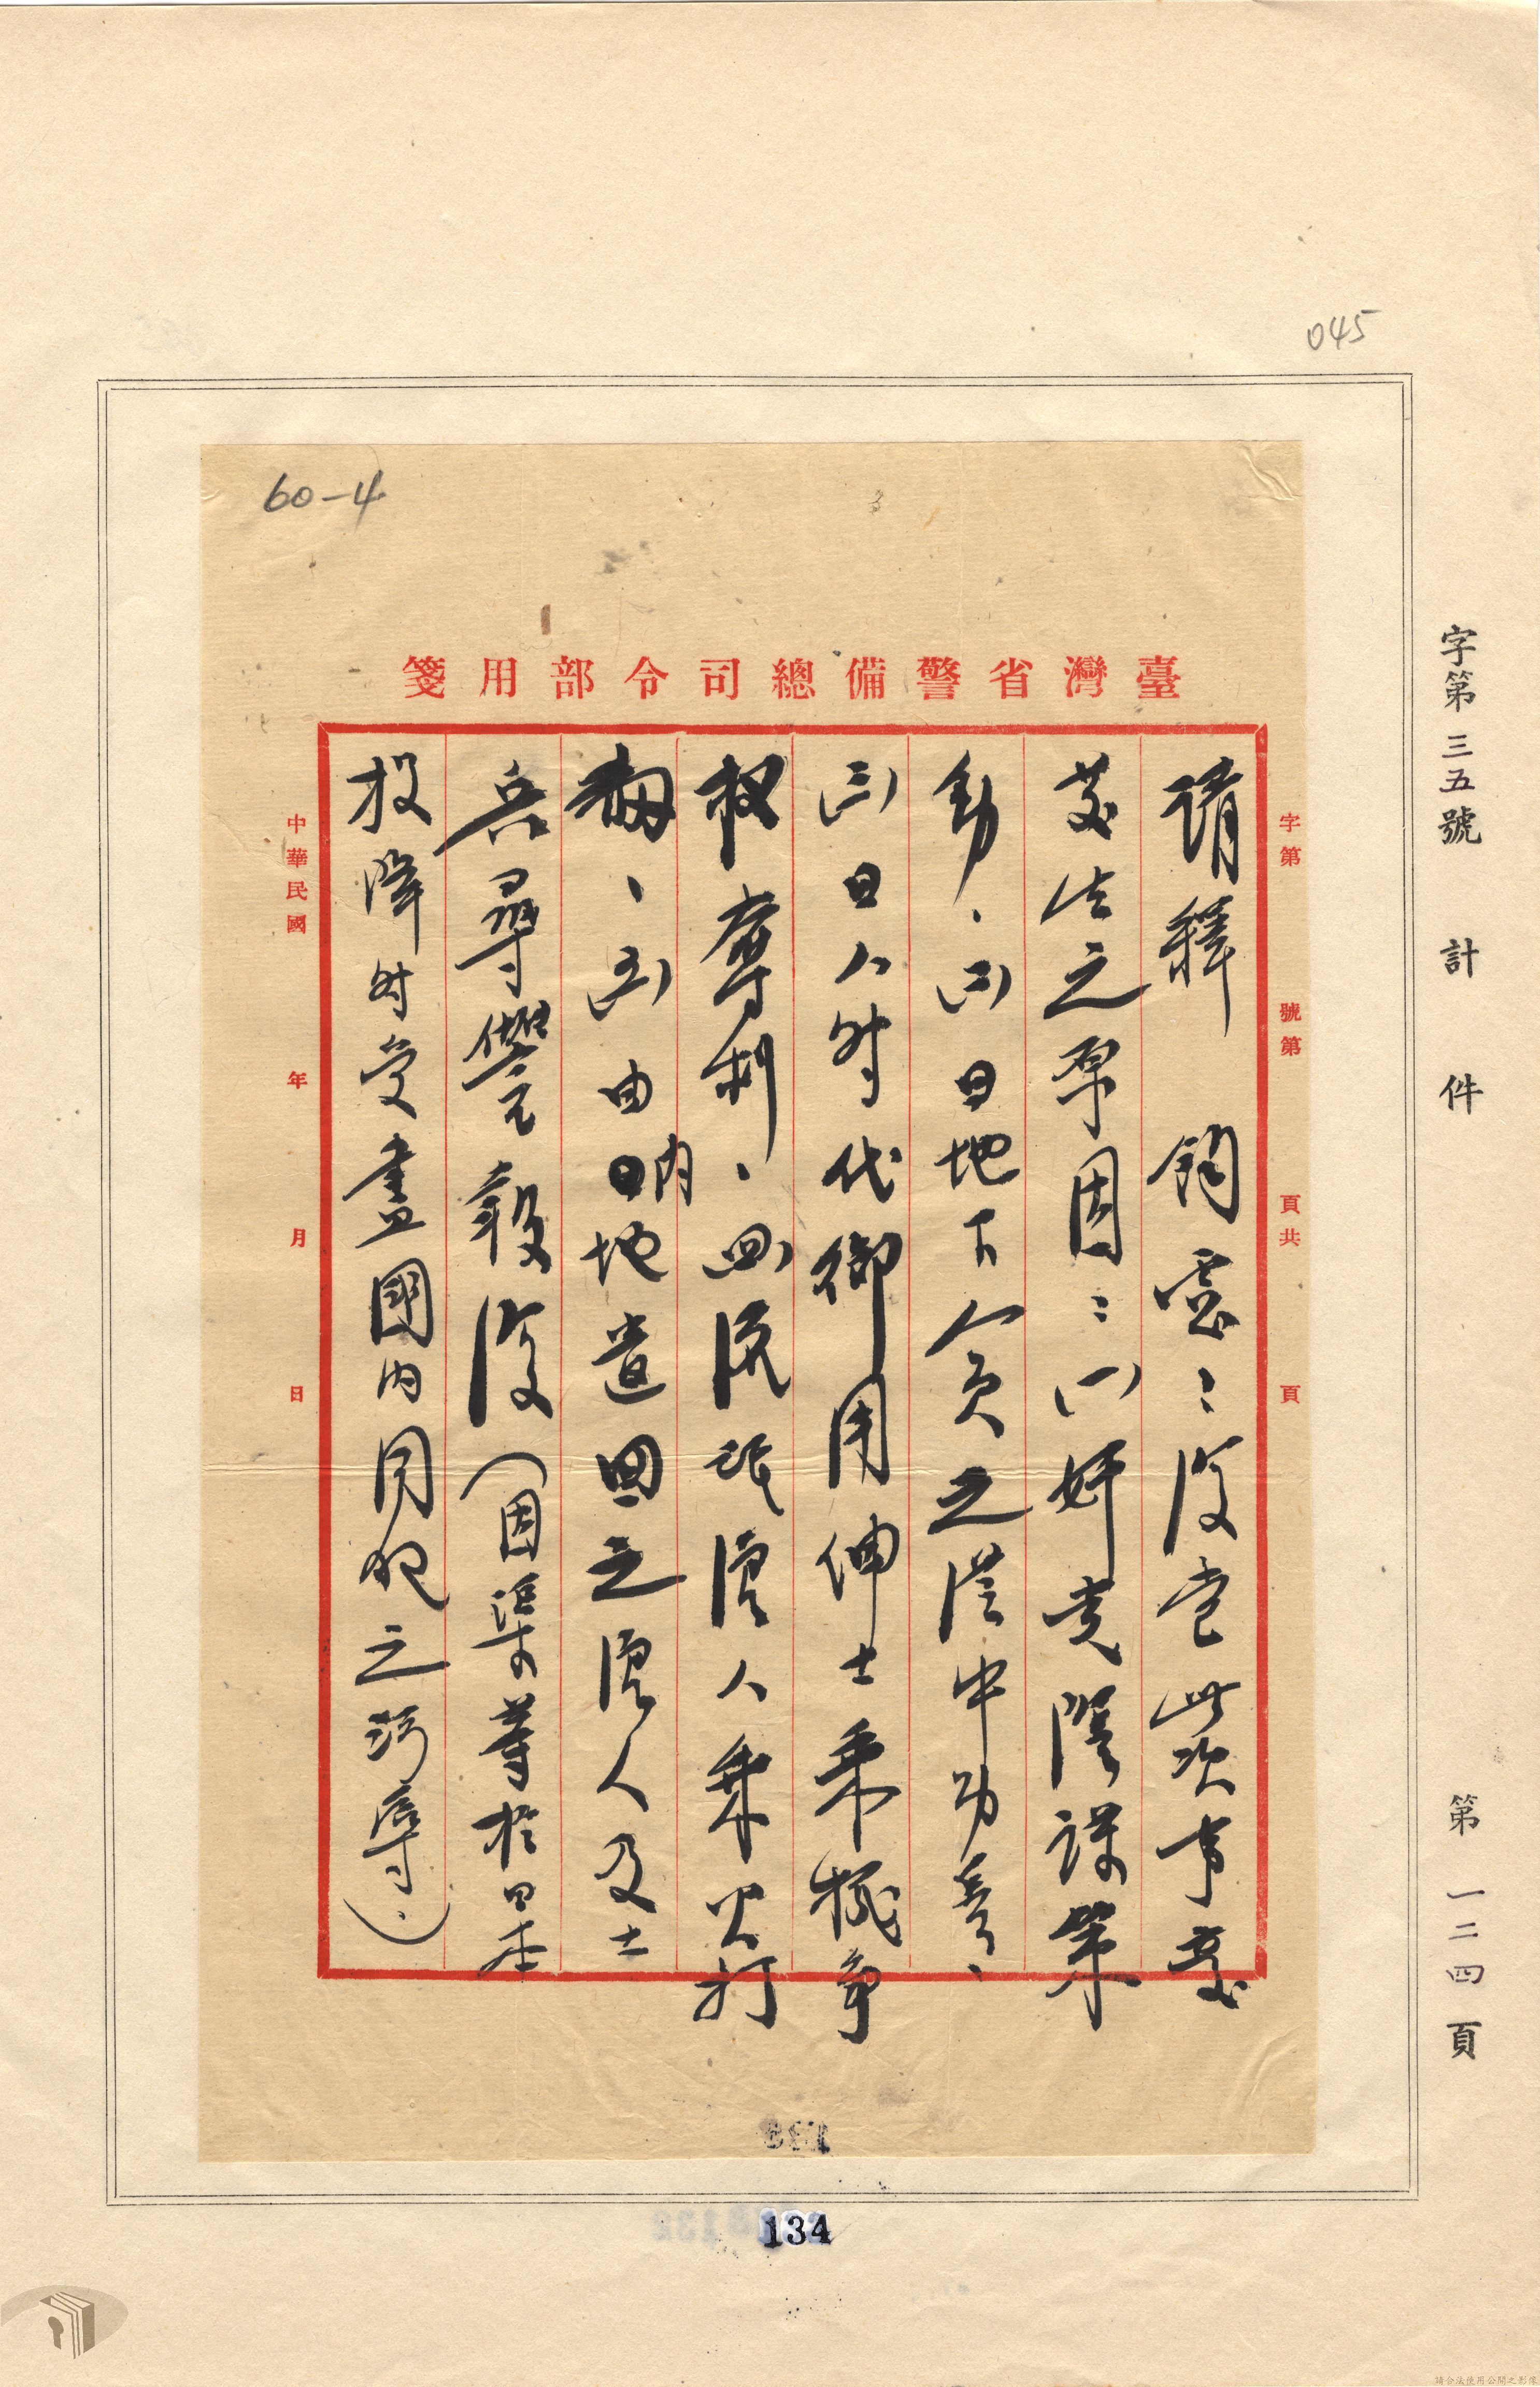 045
60-4
臺灣省警備總司令部用箋
字第 號第 頁共 頁
請釋 鈞慮：復查此次事變
發生之原因：(一)奸黨陰謀策
動、(二)日地下人員之從中助長、
(三)日人時代御用紳士乘機爭
權奪利、(四)流氓浪人乘火打
劫、(五)由明地遣回之浪人及士
兵尋釁報復（因渠等於日本
投降時受盡國內同胞之污辱）
中華民國 年 月 日
字第三五號 計 件
第一二四頁
134
請合法使用公開之影像